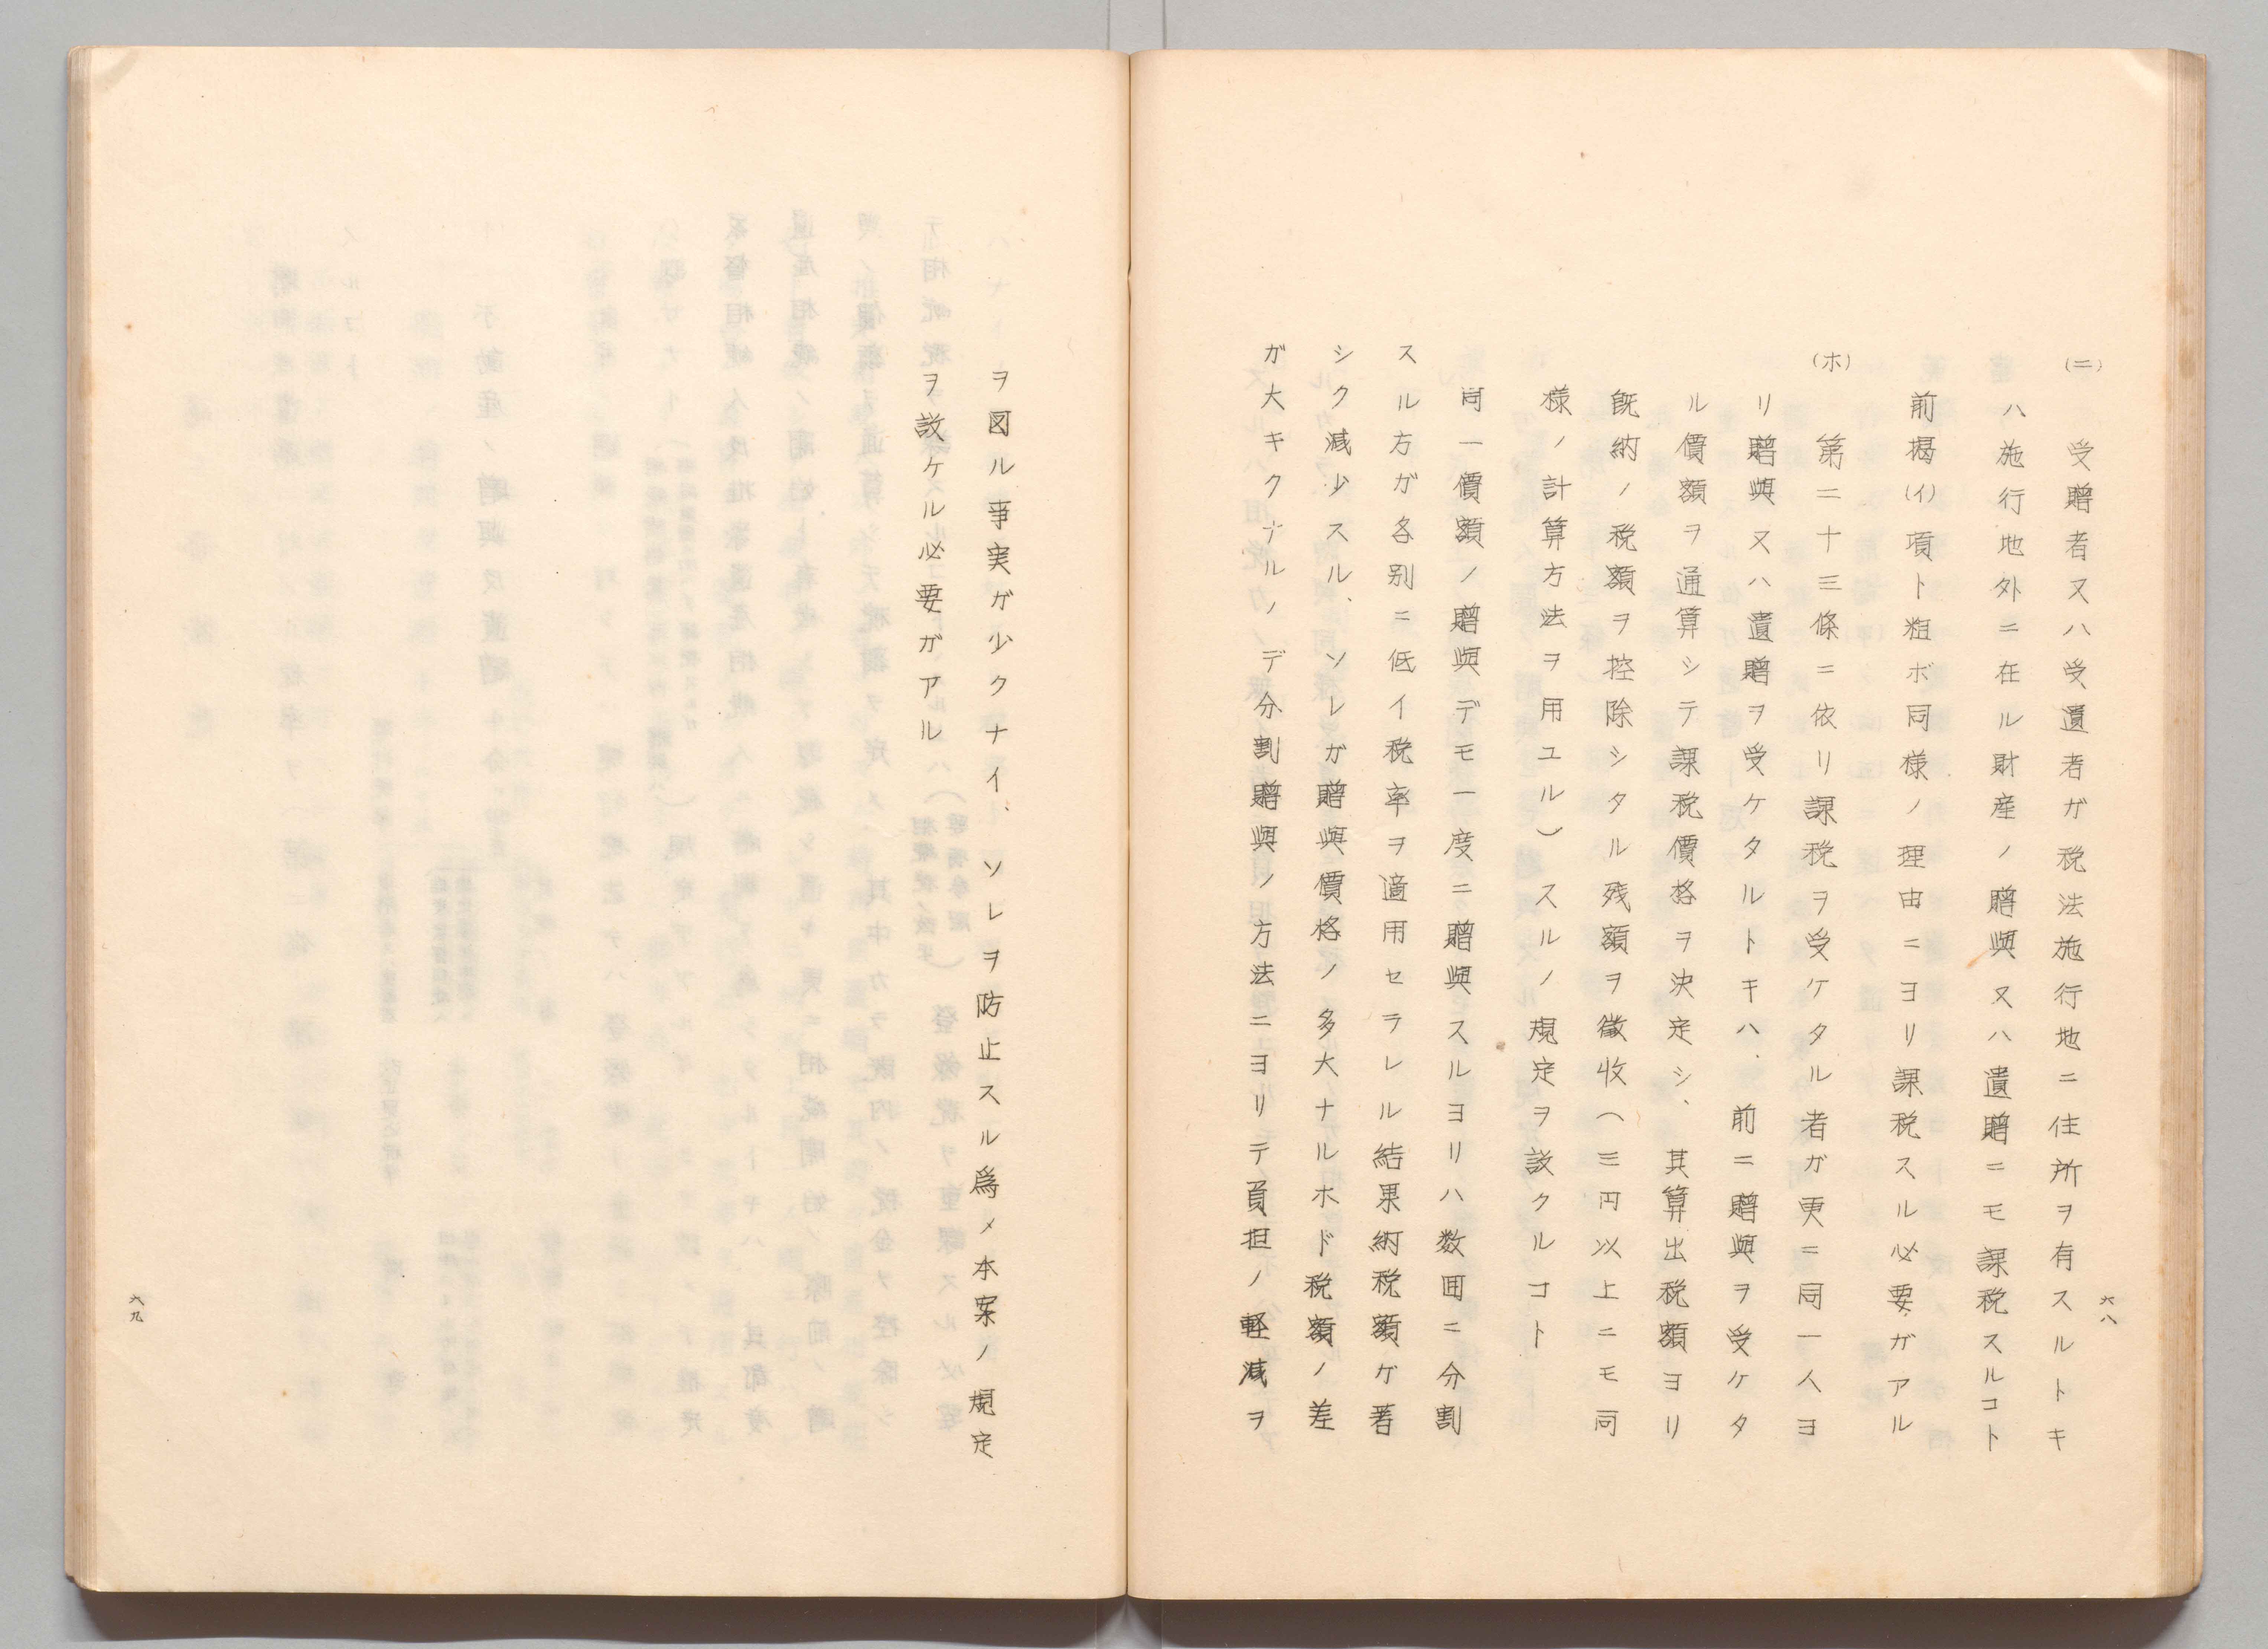 六八
(ニ)　受贈者又ハ受遺者ガ税法施行地ニ住所ヲ有スルトキ
ハ施行地外ニ在ル財産ノ贈與又ハ遺贈ニモ課税スルコト
前掲(イ)項ト粗ボ同様ノ理由ニヨリ課税スル必要ガアル
(ホ)　第二十三條ニ依リ課税ヲ受ケタル者ガ更ニ同一人ヨ
リ贈與又ハ遺贈ヲ受ケタルトキハ、前ニ贈與ヲ受ケタ
ル價額ヲ通算シテ課税價格ヲ決定シ、其算出税額ヨリ
既納ノ税額ヲ控除シタル残額ヲ徴收(三円以上ニモ同
様ノ計算方法ヲ用ユル)スルノ規定ヲ設クルコト
同一價額ノ贈與デモ一度ニ贈與スルヨリハ数囬ニ分割
スル方ガ各別ニ低イ税率ヲ適用セラレル結果納税額ガ著
シク減少スル、ソレガ贈與價格ノ多大ナルホド税額ノ差
ガ大キクナルノデ分割贈與ノ方法ニヨリテ負担ノ軽減ヲ
ヲ図ル事実ガ少クナイ、ソレヲ防止スル爲メ本案ノ規定
ヲ設ケル必要ガアル
六九